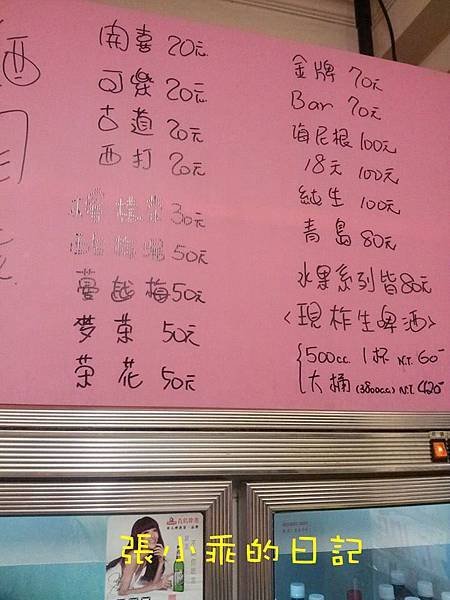 酒
開喜 20元
可樂 20元
古道 20元
西打 20元
30元
50元
蔓越梅 50元
夢菓 50元
茶花 50元
金牌 70元
Bar 70元
海尼根 100元
18天 100元
純生 100元
青島 80元
水果系列皆80元
<現柞生啤酒>
500cc 1杯 N.T. 60
大桶 (3800cc) N.T. 420
張小乖的日記